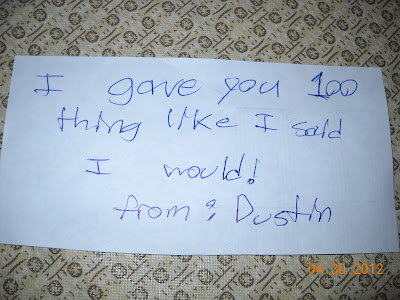 I gave you 100
thing like I said
I would!
from: Dustin
04.30.2012